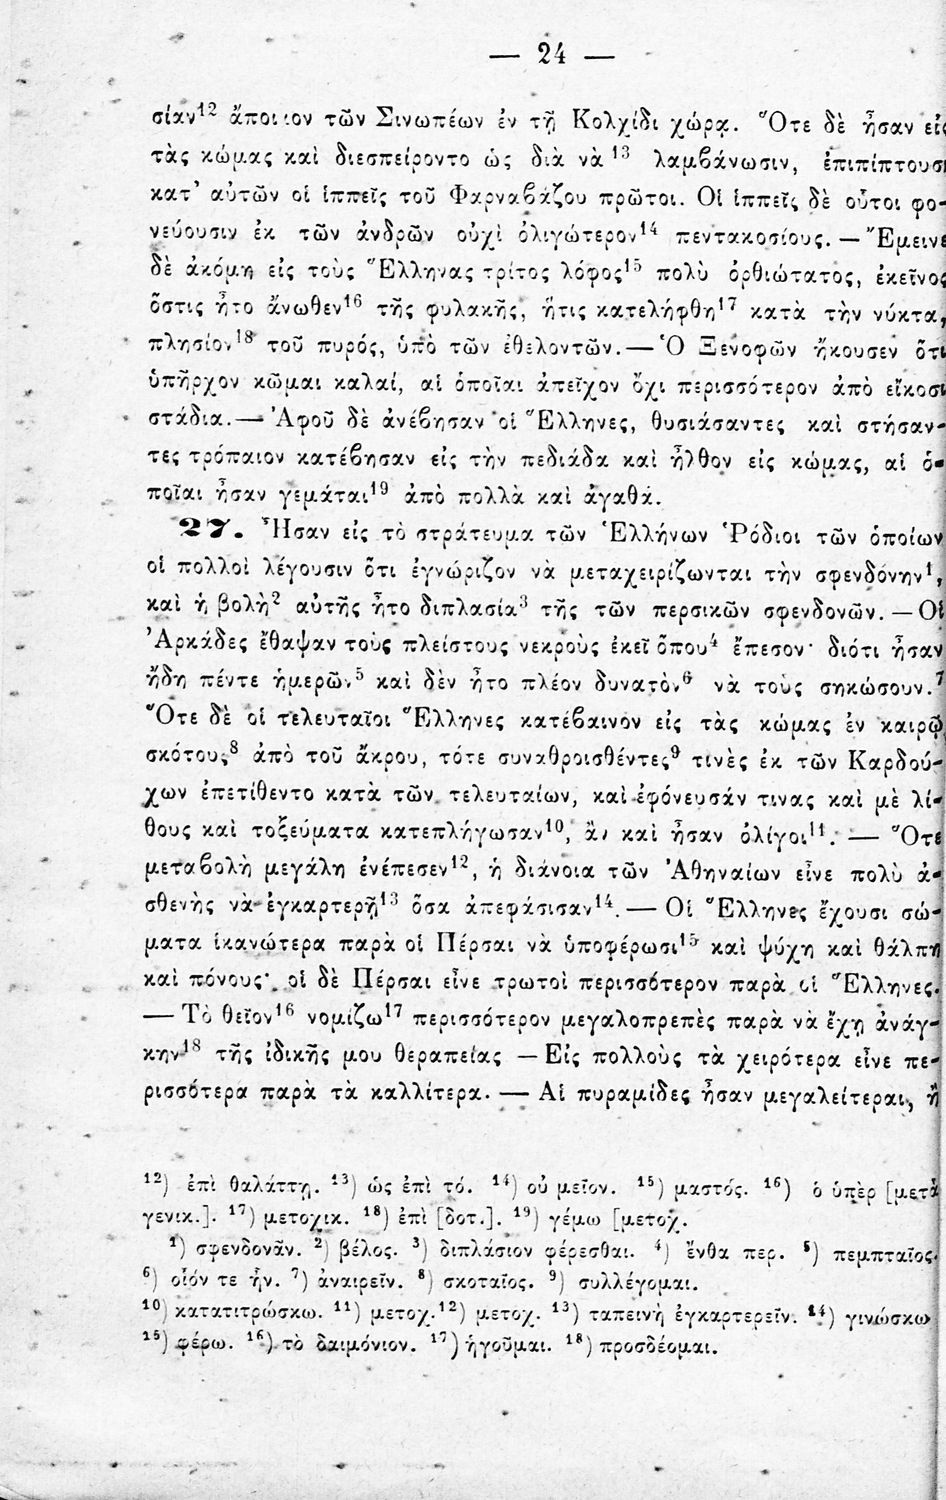 — 24 —
σίαν¹² ἄποικον τῶν Σινωπέων ἐν τῇ Κολχίδι χώρᾳ. Ὅτε δὲ ἦσαν εἰς
τὰς κώμας καὶ διεσπείροντο ὡς διὰ νὰ¹³ λαμβάνωσιν, ἐπιπίπτουσι
κατ' αὐτῶν οἱ ἱππεῖς τοῦ Φαρναβάζου πρῶτοι. Οἱ ἱππεῖς δὲ οὗτοι φο-
νεύουσιν ἐκ τῶν ἀνδρῶν οὐχὶ ὀλιγώτερον¹⁴ πεντακοσίους. — Ἔμεινε
δὲ ἀκόμη εἰς τοὺς Ἕλληνας τρίτος λόφος¹⁵ πολὺ ὀρθιώτατος, ἐκεῖνος
ὅστις ἦτο ἄνωθεν¹⁶ τῆς φυλακῆς, ἥτις κατελήφθη¹⁷ κατὰ τὴν νύκτα,
πλησίον¹⁸ τοῦ πυρός, ὑπὸ τῶν ἐθελοντῶν. — Ὁ Ξενοφῶν ἤκουσεν ὅτι
ὑπῆρχον κῶμαι καλαί, αἱ ὁποῖαι ἀπεῖχον ὄχι περισσότερον ἀπὸ εἴκοσι
στάδια. — Ἀφοῦ δὲ ἀνέβησαν οἱ Ἕλληνες, θυσιάσαντες καὶ στήσαν-
τες τρόπαιον κατέβησαν εἰς τὴν πεδιάδα καὶ ἦλθον εἰς κώμας, αἱ ὁ-
ποῖαι ἦσαν γεμάται¹⁹ ἀπὸ πολλὰ καὶ ἀγαθά.
27. Ἦσαν εἰς τὸ στράτευμα τῶν Ἑλλήνων Ῥόδιοι τῶν ὁποίων
οἱ πολλοὶ λέγουσιν ὅτι ἐγνώριζον νὰ μεταχειρίζωνται τὴν σφενδόνην¹,
καὶ ἡ βολὴ² αὐτῆς ἦτο διπλασία³ τῆς τῶν περσικῶν σφενδονῶν. — Οἱ
Ἀρκάδες ἔθαψαν τοὺς πλείστους νεκροὺς ἐκεῖ ὅπου⁴ ἔπεσον· διότι ἦσαν
ἤδη πέντε ἡμερῶν⁵ καὶ δὲν ἦτο πλέον δυνατὸν⁶ νὰ τοὺς σηκώσουν.⁷
Ὅτε δὲ οἱ τελευταῖοι Ἕλληνες κατέβαινον εἰς τὰς κώμας ἐν καιρῷ
σκότους⁸ ἀπὸ τοῦ ἄκρου, τότε συναθροισθέντες⁹ τινὲς ἐκ τῶν Καρδού-
χων ἐπετίθεντο κατὰ τῶν τελευταίων, καὶ ἐφόνευσάν τινας καὶ μὲ λί-
θους καὶ τοξεύματα κατεπλήγωσαν¹⁰, ἂν καὶ ἦσαν ὀλίγοι¹¹. — Ὅτε
μεταβολὴ μεγάλη ἐνέπεσεν¹², ἡ διάνοια τῶν Ἀθηναίων εἶνε πολὺ ἀ-
σθενὴς νὰ ἐγκαρτερῇ¹³ ὅσα ἀπεφάσισαν¹⁴. — Οἱ Ἕλληνες ἔχουσι σώ-
ματα ἱκανώτερα παρὰ οἱ Πέρσαι νὰ ὑποφέρωσι¹⁵ καὶ ψύχη καὶ θάλπη
καὶ πόνους· οἱ δὲ Πέρσαι εἶνε τρωτοὶ περισσότερον παρὰ οἱ Ἕλληνες.
— Τὸ θεῖον¹⁶ νομίζω¹⁷ περισσότερον μεγαλοπρεπὲς παρὰ νὰ ἔχῃ ἀνάγ-
κην¹⁸ τῆς ἰδικῆς μου θεραπείας — Εἰς πολλοὺς τὰ χειρότερα εἶνε πε-
ρισσότερα παρὰ τὰ καλλίτερα. — Αἱ πυραμίδες ἦσαν μεγαλείτεραι, ἢ
¹²) ἐπὶ θαλάττῃ. ¹³) ὡς ἐπὶ τό. ¹⁴) οὐ μεῖον. ¹⁵) μαστός. ¹⁶) ὁ ὑπὲρ [μετὰ
γενικ.]. ¹⁷) μετοχικ. ¹⁸) ἐπὶ [δοτ.]. ¹⁹) γέμω [μετοχ.
¹) σφενδονᾶν. ²) βέλος. ³) διπλάσιον φέρεσθαι. ⁴) ἔνθα περ. ⁵) πεμπταῖος.
⁶) οἷόν τε ἦν. ⁷) ἀναιρεῖν. ⁸) σκοταῖος. ⁹) συλλέγομαι.
¹⁰) κατατιτρώσκω. ¹¹) μετοχ. ¹²) μετοχ. ¹³) ταπεινὴ ἐγκαρτερεῖν. ¹⁴) γινώσκω
¹⁵) φέρω. ¹⁶) τὸ δαιμόνιον. ¹⁷) ἡγοῦμαι. ¹⁸) προσδέομαι.